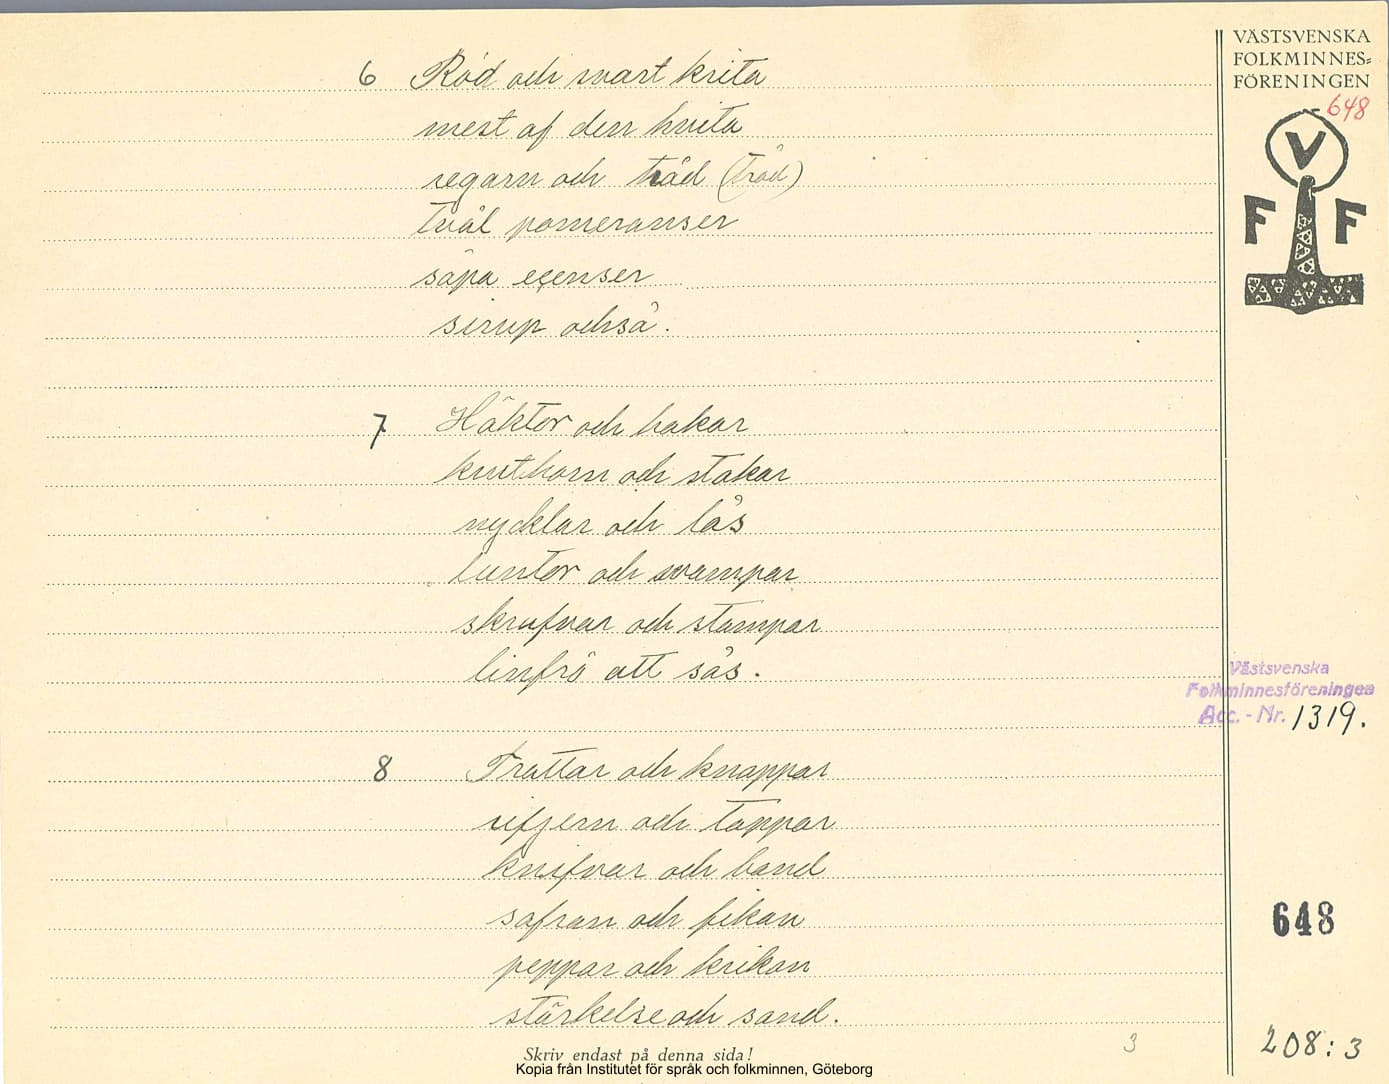 VÄSTSVENSKA
FOLKMINNES=
FÖRENINGEN
648
V
F F
6 Röd och svart krita
mest af den hvita
segarn och tråd (tråd)
tvål pomeranser
såpa eçenser
sirup också.
7 Häktor och hakar
knuthorn och stakar
nycklar och lås
luntor och svampar
skrufvar och stampar
linfrö att sås.
Västsvenska
Folkminnesföreningen
Acc.-Nr. 1319.
8 Trattar och knappar
sifjern och tappar
knifvar och band
safran och fikan
peppar och krikon
stärkelse och sand.
648
3
208:3
Skriv endast på denna sida!
Kopia från Institutet för språk och folkminnen, Göteborg